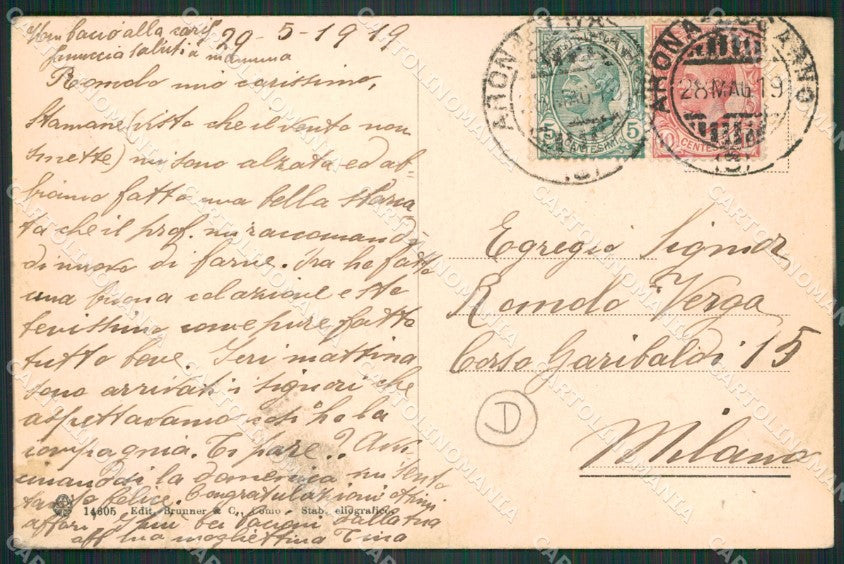 29-5-1919
Un bacio alla cara
saluti a mamma
Romolo mio carissimo,
Stamane (visto che il vento non
smette) mi sono alzata ed ab-
biamo fatto una bella
ta che il prof. mi raccomandò
di nuovo di farne. Ora ho fatto
una buona colazione e sto
benissimo come pure fatto
tutto bene. Ieri mattina
sono arrivati i signori che
aspettavamo così ho la
compagnia. Ti pare..? Avvi
cinandosi la domenica mi sento
tanto felice. Congratulazioni ottimi
affari. I più bei bacioni dalla tua
aff tua mogliettina Tina
14605 Edit. Brunner & C., Como - Stab. eliografico
ARONA
5 5
CENTESIMI
ARONA LOCARNO
28 MAG 19
10
CENTESIMI
(3)
Egregio Signor
Romolo Verga
Corso Garibaldi 15
Milano
D
CARTOLINOMANIA